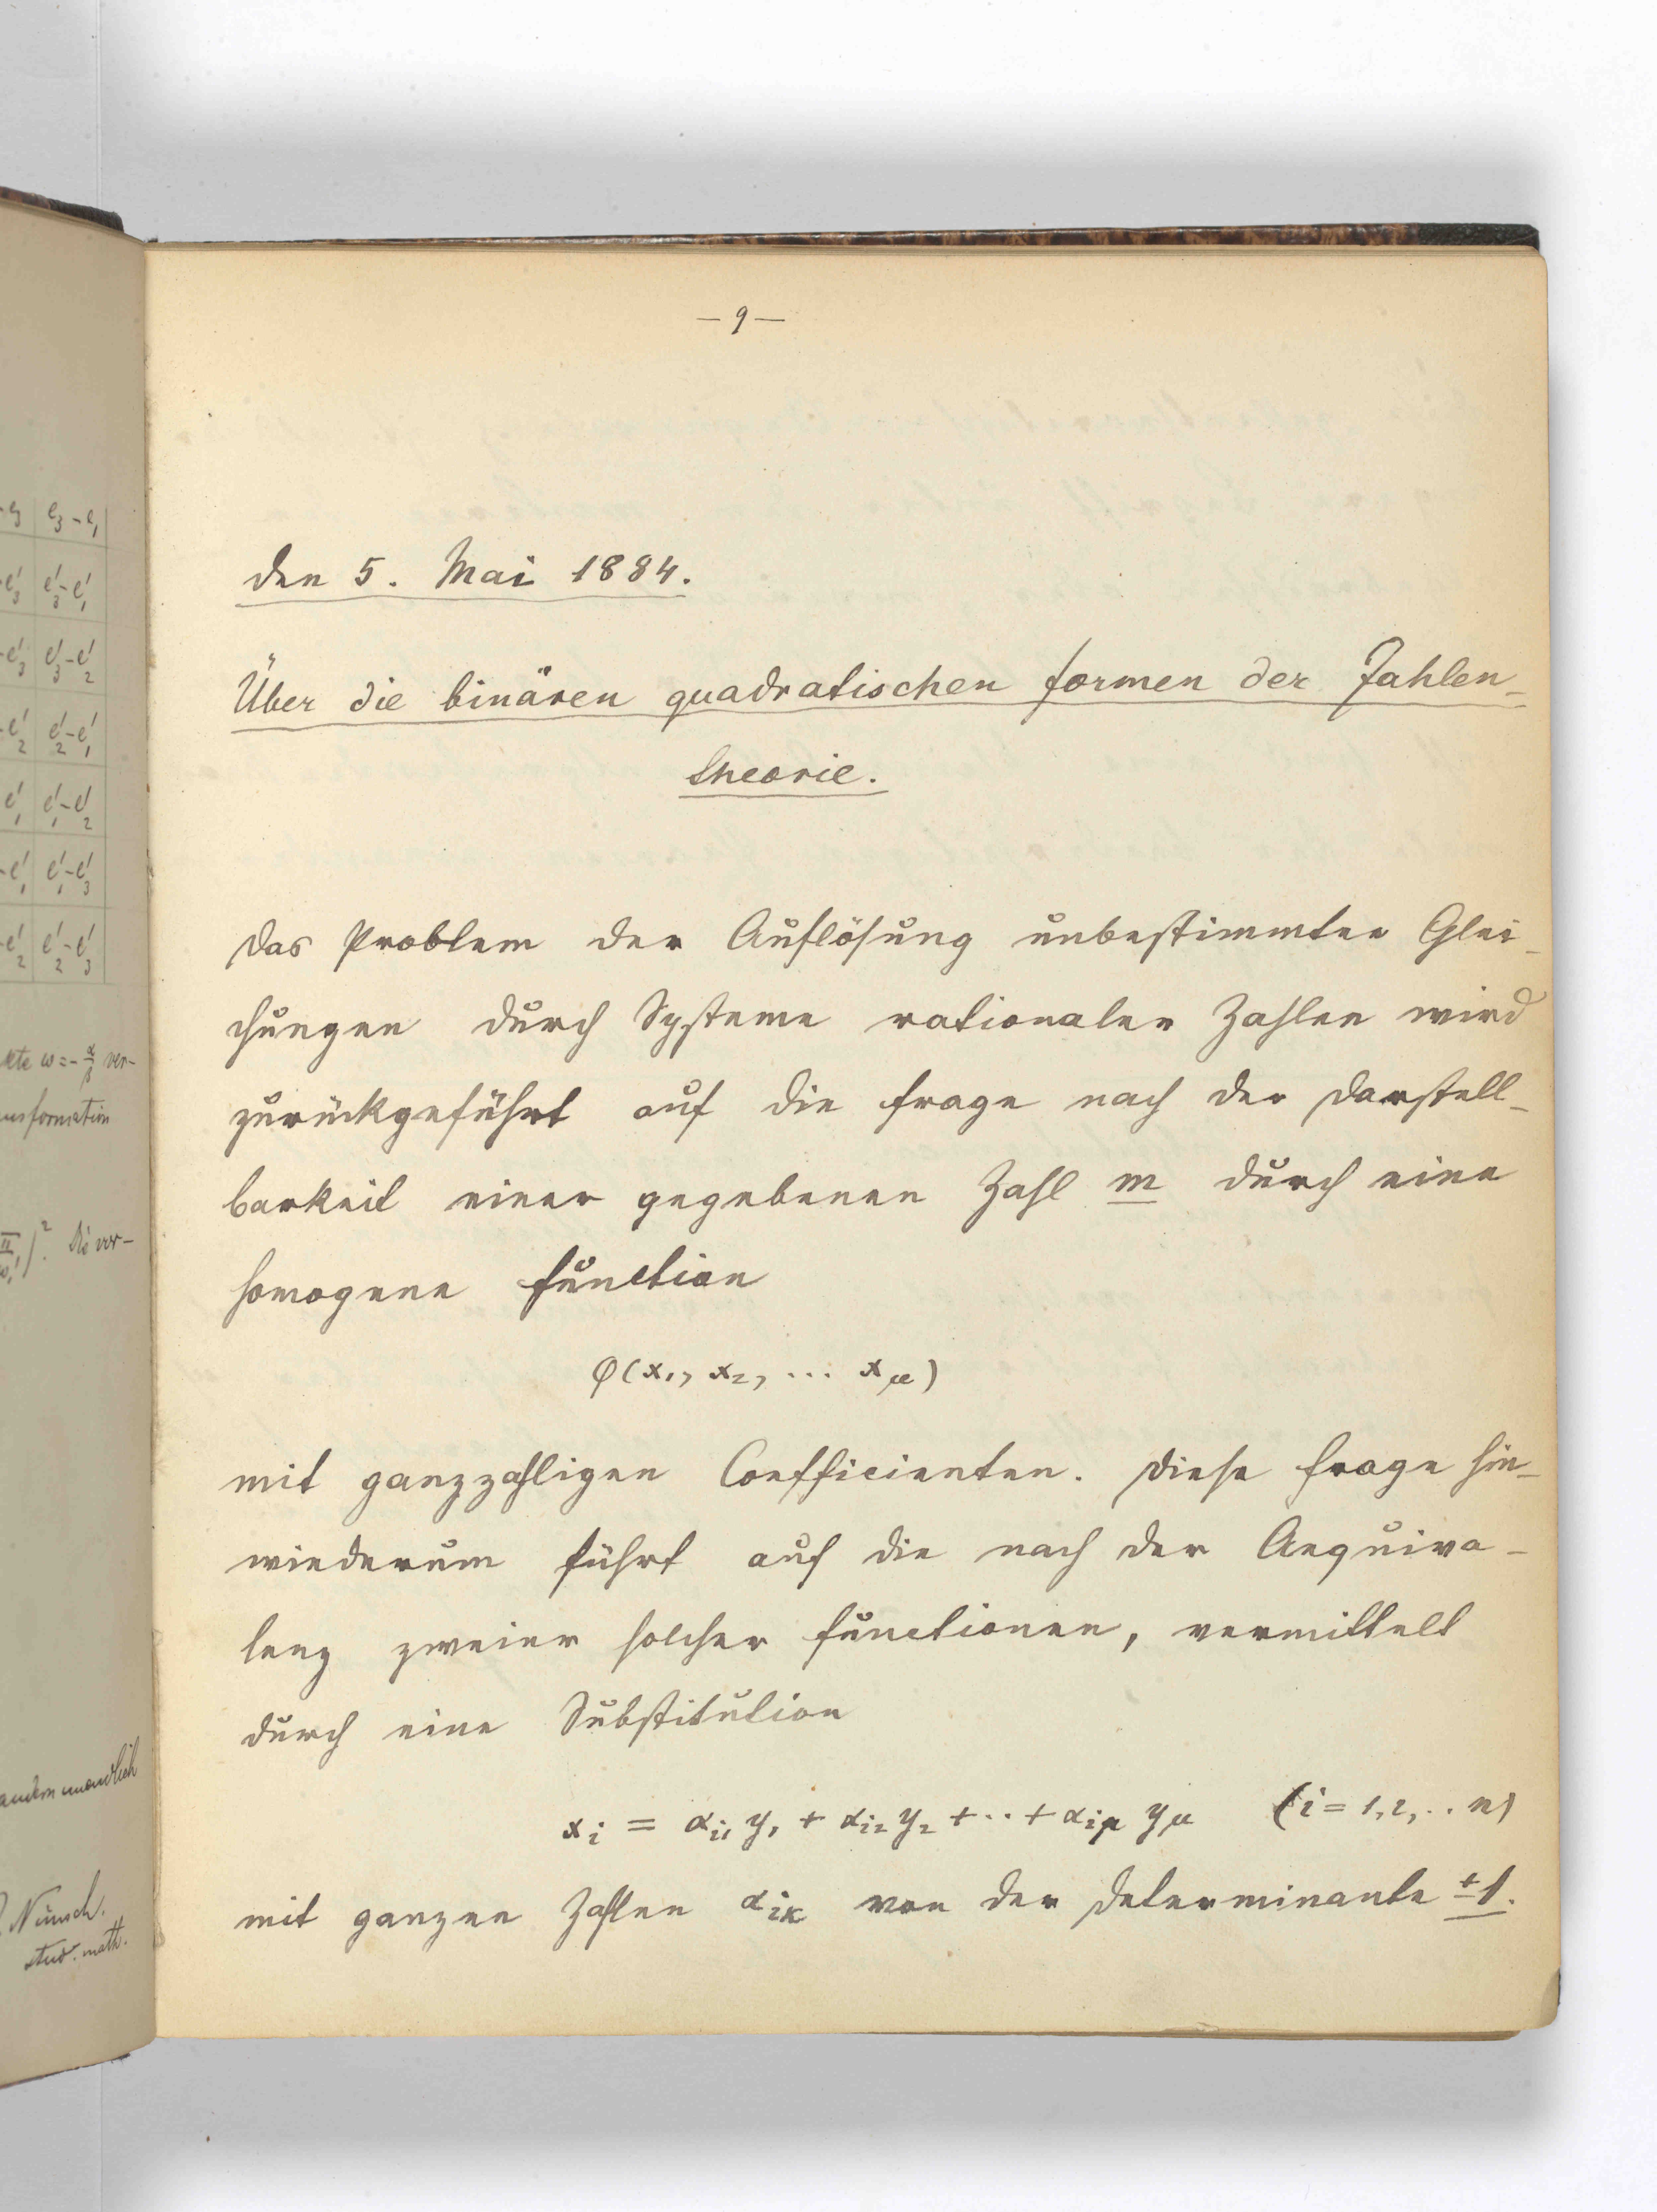 e3-e1
e'3-e'1
e'3-e'2
e'2-e'1
e'1-e'2
e'1-e'3
e'2-e'3
ω=-α/β ver-
formation
)². Die ver-
Nünsch.
stud. math.
– 9 –
den 5. Mai 1884.
Über die binären quadratischen Formen der Zahlen-
theorie.
Das Problem der Auflösung unbestimmter Glei-
chungen durch Systeme rationaler Zahlen wird
zurückgeführt auf die Frage nach der Darstell-
barkeit einer gegebenen Zahl m durch eine
homogene Function
φ(x₁, x₂, ... x_μ)
mit ganzzahligen Coefficienten. Diese Frage hin-
wiederum führt auf die nach der Aequiva-
lenz zweier solcher Functionen, vermittelt
durch eine Substitution
x_i = α_i1 y₁ + α_i2 y₂ + .. + α_iμ y_μ (i = 1, 2, .. n)
mit ganzen Zahlen α_ik von der Determinante ±1.